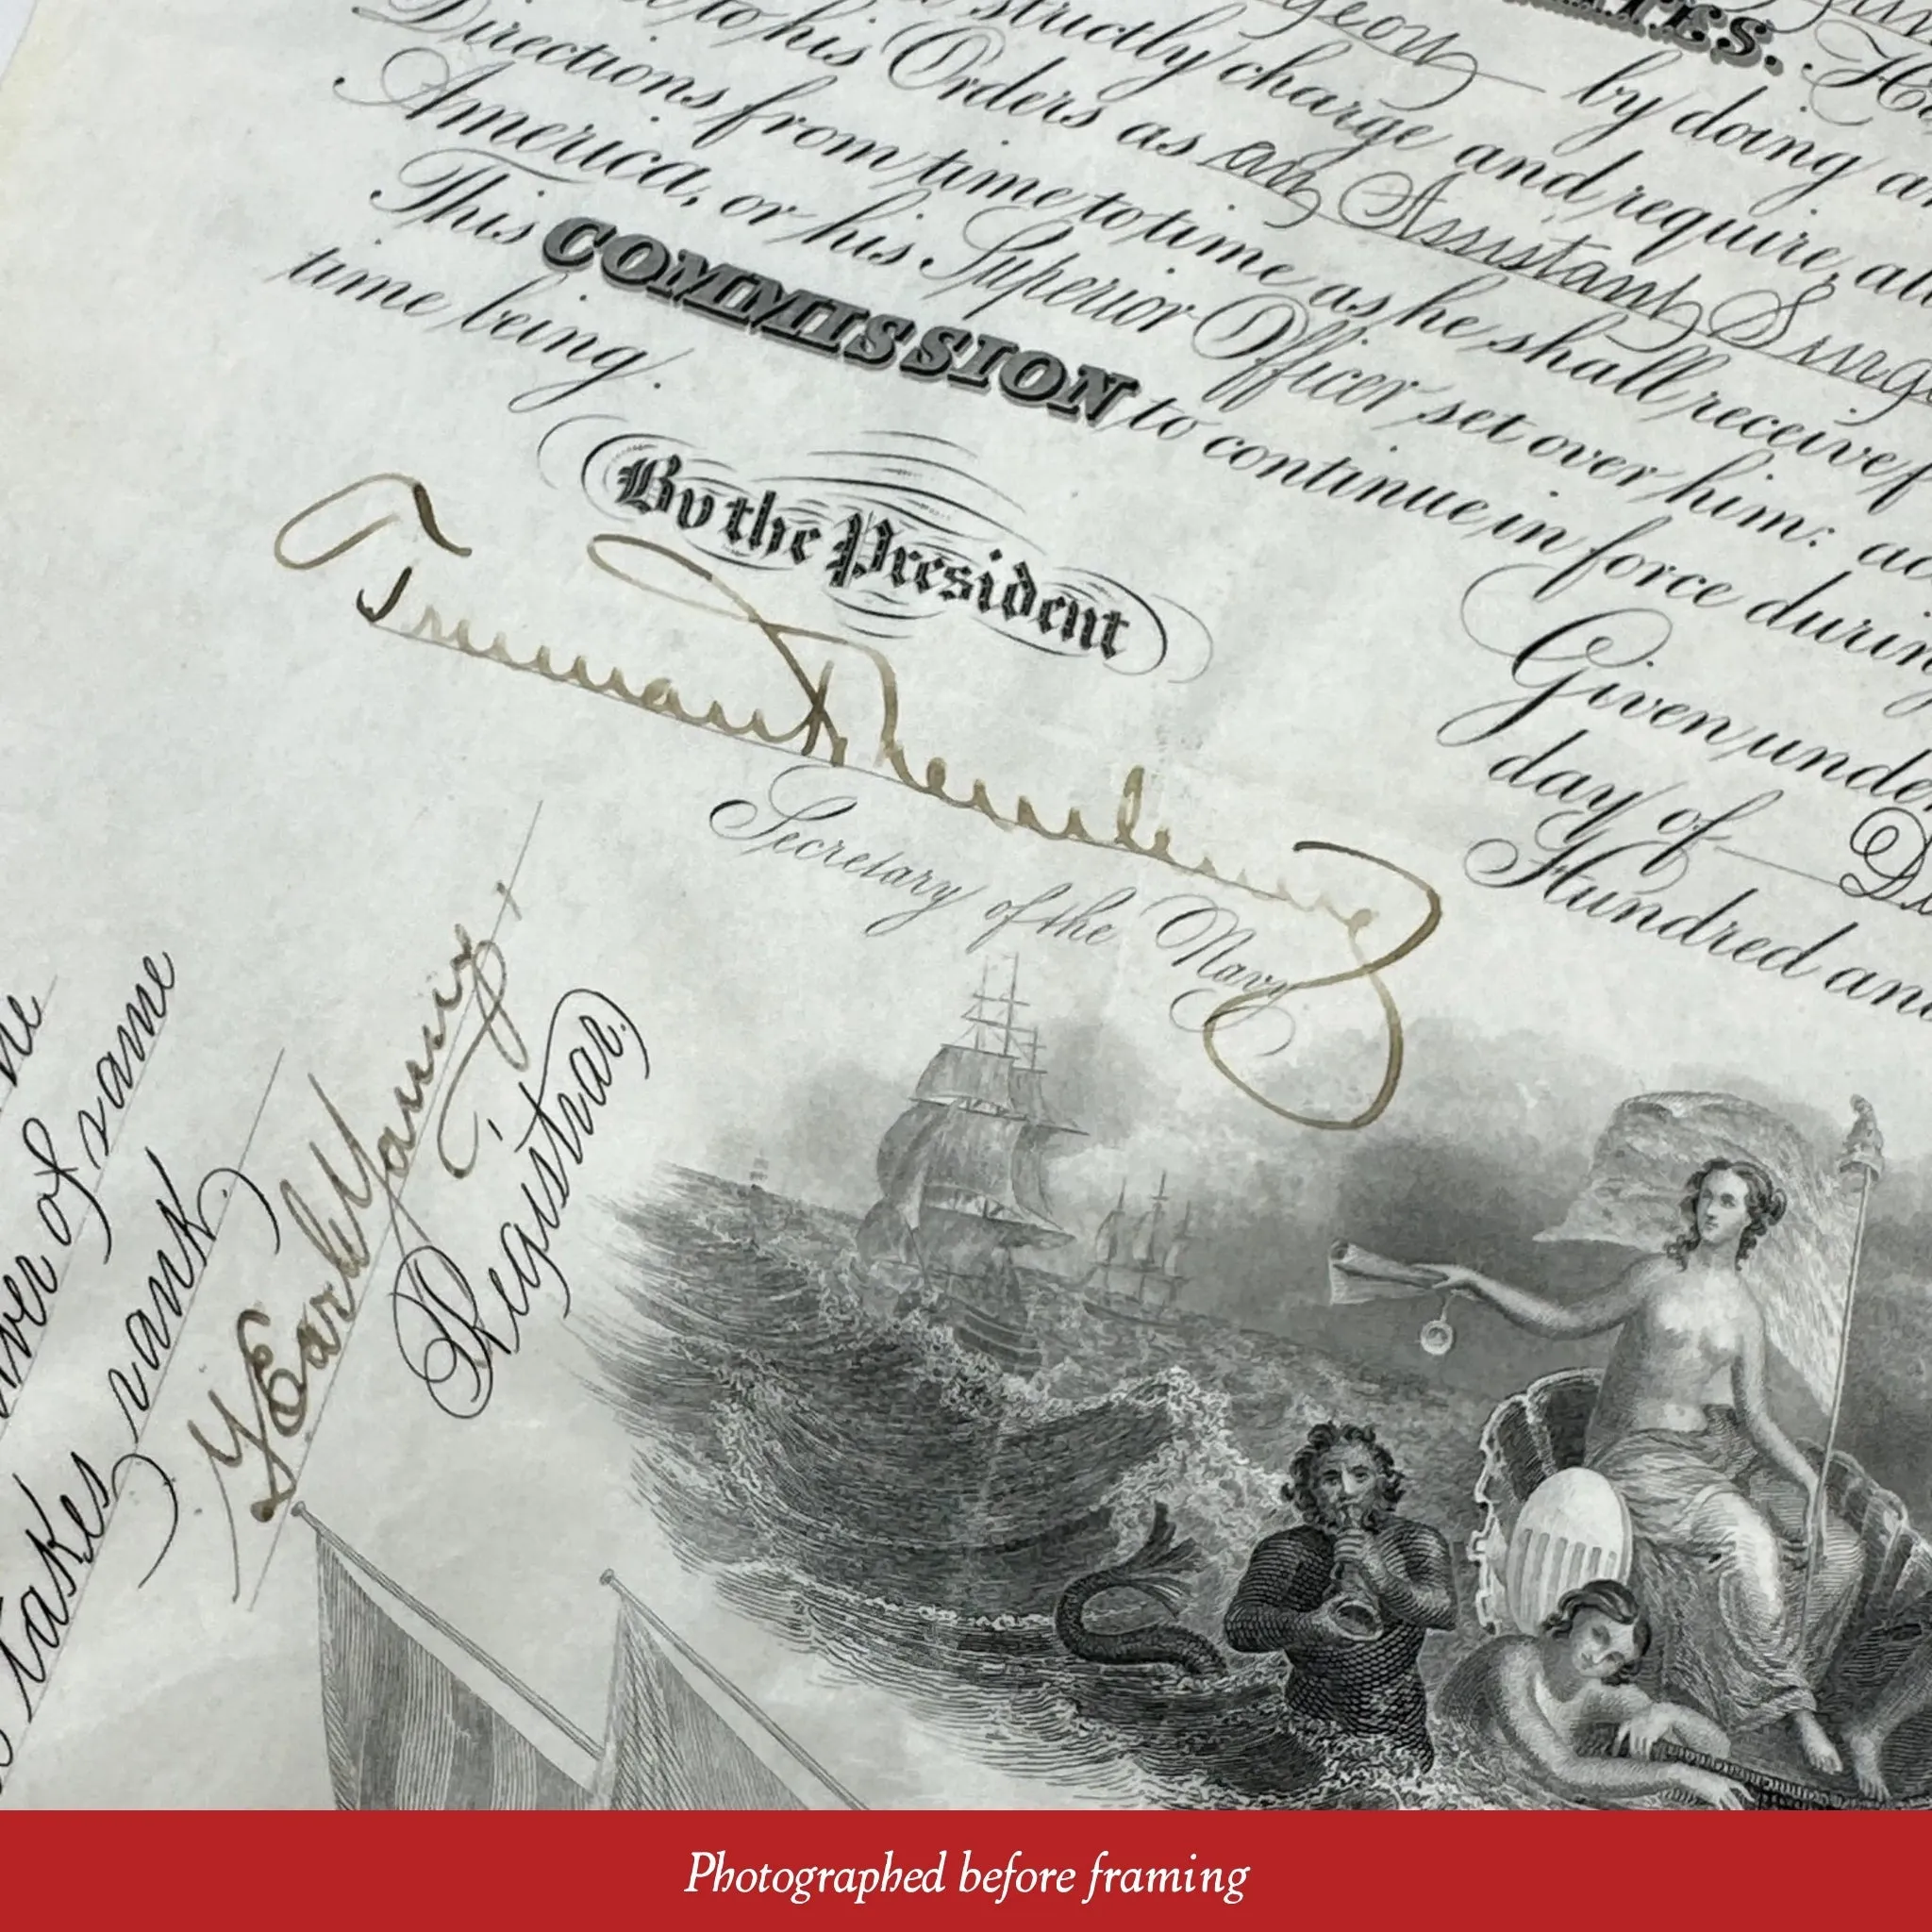 ATES.
geon by doing a
strictly charge and require, all
to his Orders as an Assistant Surge
Directions from time to time as he shall receive f
America, or his Superior Officer set over him: ac
This COMMISSION to continue in force during
time being.
By the President
Truman H. Newberry
Secretary of the Navy
Given unde
day of De
Hundred and
of same
takes rank
Registrar.
Photographed before framing